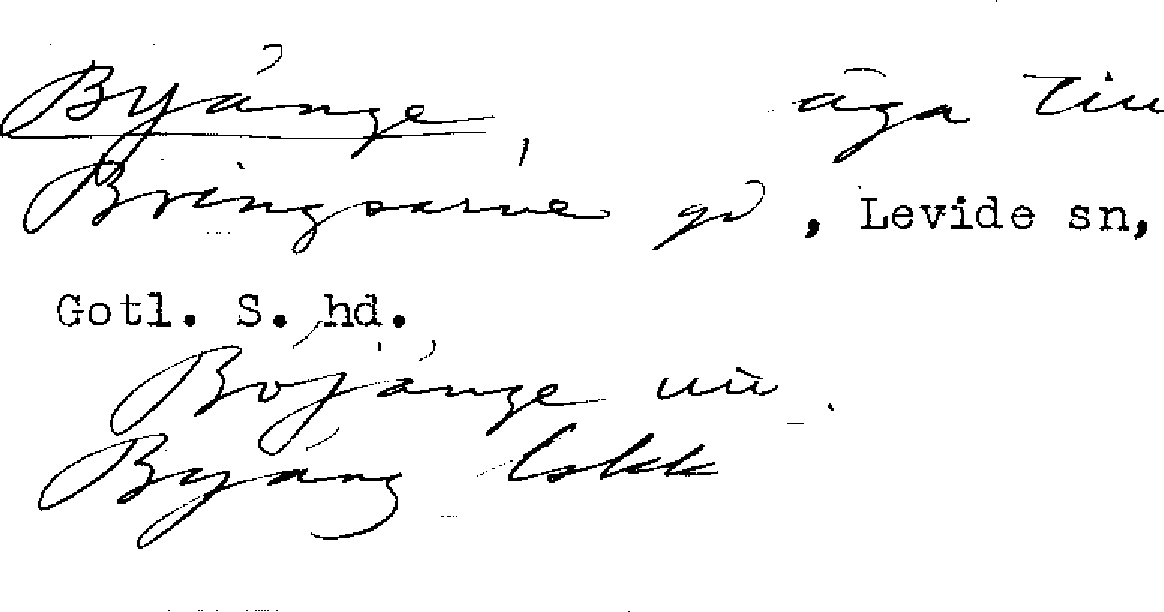 Byänge, äga till
Bringsarve gd, Levide sn,
Gotl. S. hd.
Böjänge
Byäng lskk